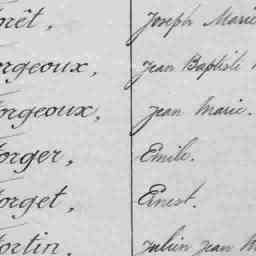 orêt, Joseph Marie
orgeoux, Jean Baptiste
orgeoux, Jean Marie.
orger, Emile.
orget, Ernest.
ortin, Julien Jean M